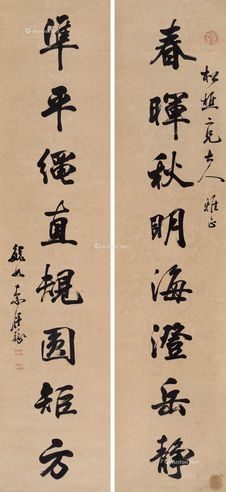 松樵大人雅正
春暉秋明海澄岳靜
準平繩直規圓矩方